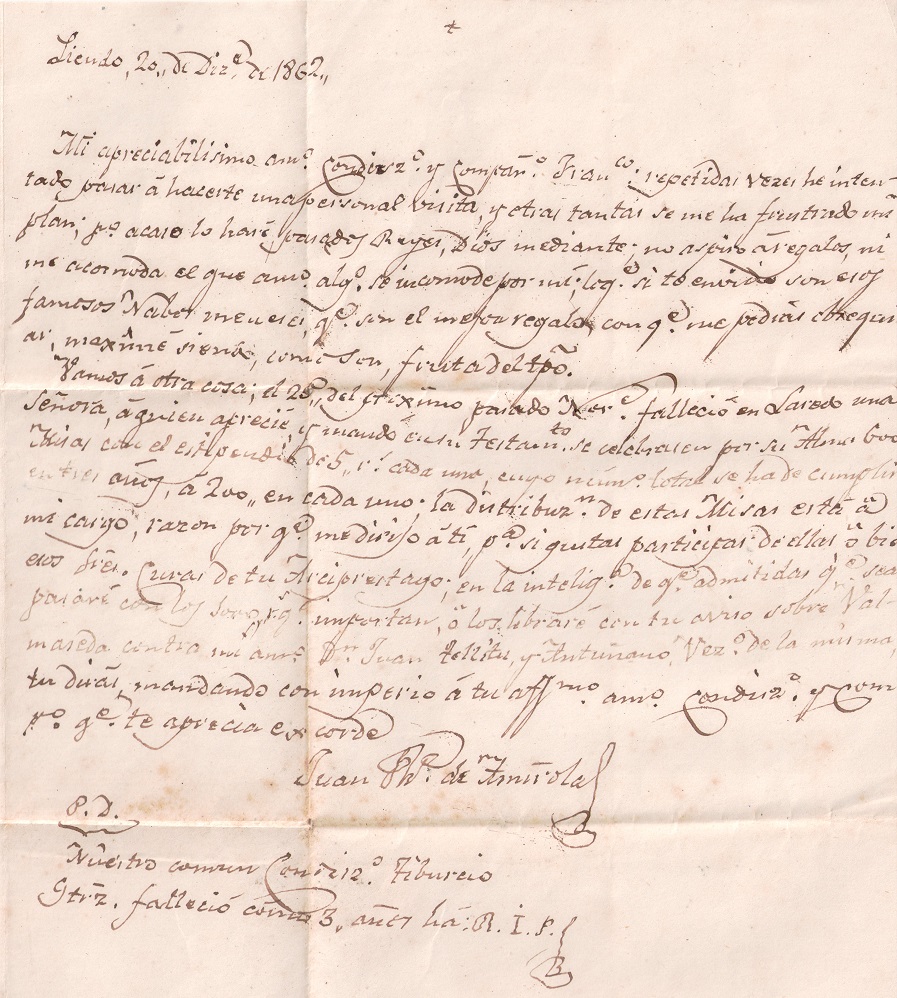 +
Liendo, 20,, de Diz.e de 1862,,
Mi apreciabilisimo am.o Condisz.o y Compañ.o Fran.co: repetidas vezes he inten-
tado pasar á hacerte una personal visita, y otras tantas se me ha frustrado mi
plan; p.o acaso lo haré, pasados Reyes, Dios mediante; no aspiro á regalos, ni
me acomoda el que am.o alg.o se incomode por mi; lo q.e si te envidio son esos
famosos Nabos q.e son el mejor regalo con q.e me podias obsequi
ar, maximé siendo, como son, fruta del tpo.
Vamos á otra cosa; el 25,, del proximo pasado Nov.e falleció en Laredo una
Señora, á quien aprecié, y mandó en su Testam.to se celebrasen por su Alma 600
Misas con el estipendio de 5,, r.s cada una, cuyo núm.o total se ha de cumplir
en tres años, á 200,, en cada uno; la distribuz.n de estas Misas está á
mi cargo; razon por q.e me dirijo á tí, p.a si gustas participar de ellas ó bie
esos Sres. Curas de tu Arciprestazgo; en la intelig.a de q.e admitidas q.e sea
pasaré con los q.e importan, ó los libraré con tu aviso sobre Val-
maseda contra mi am.o Dn. Juan y Antuñano, Vez.o de la misma,
tu dirás, mandando con imperio á tu aff.mo am.o Condisz.o y Com
p.o q.e te aprecia ex corde
Juan de Amirola
P. D.
Nuestro comun Condisz.o Tiburcio
Gtrz. falleció como 3,, años há: R. I. P.